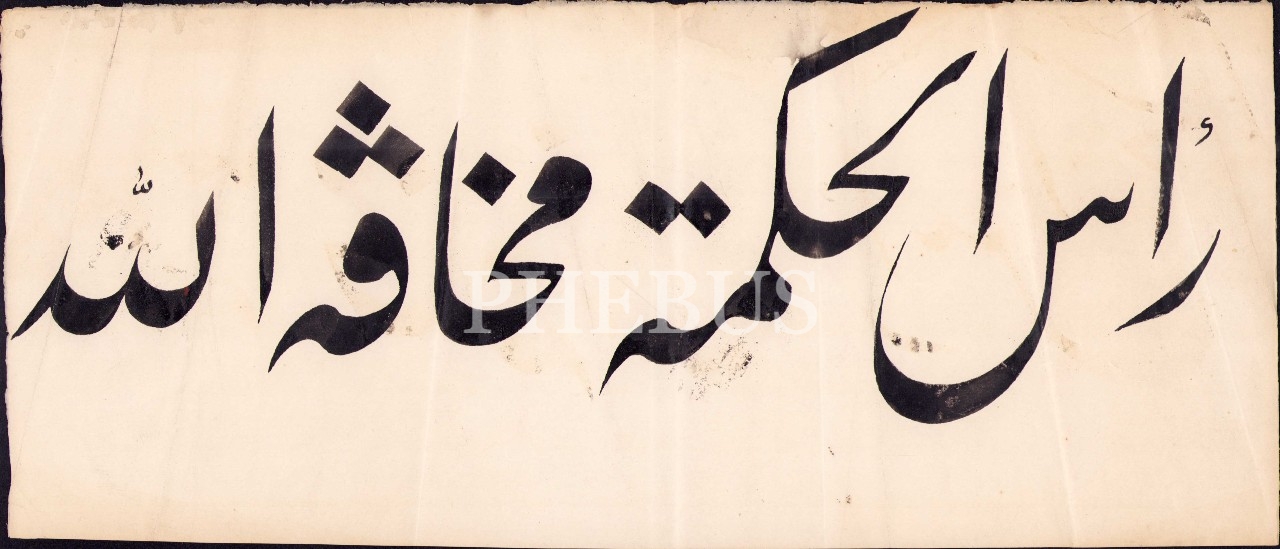 رأس الحكمة مخافة الله
PHEBUS